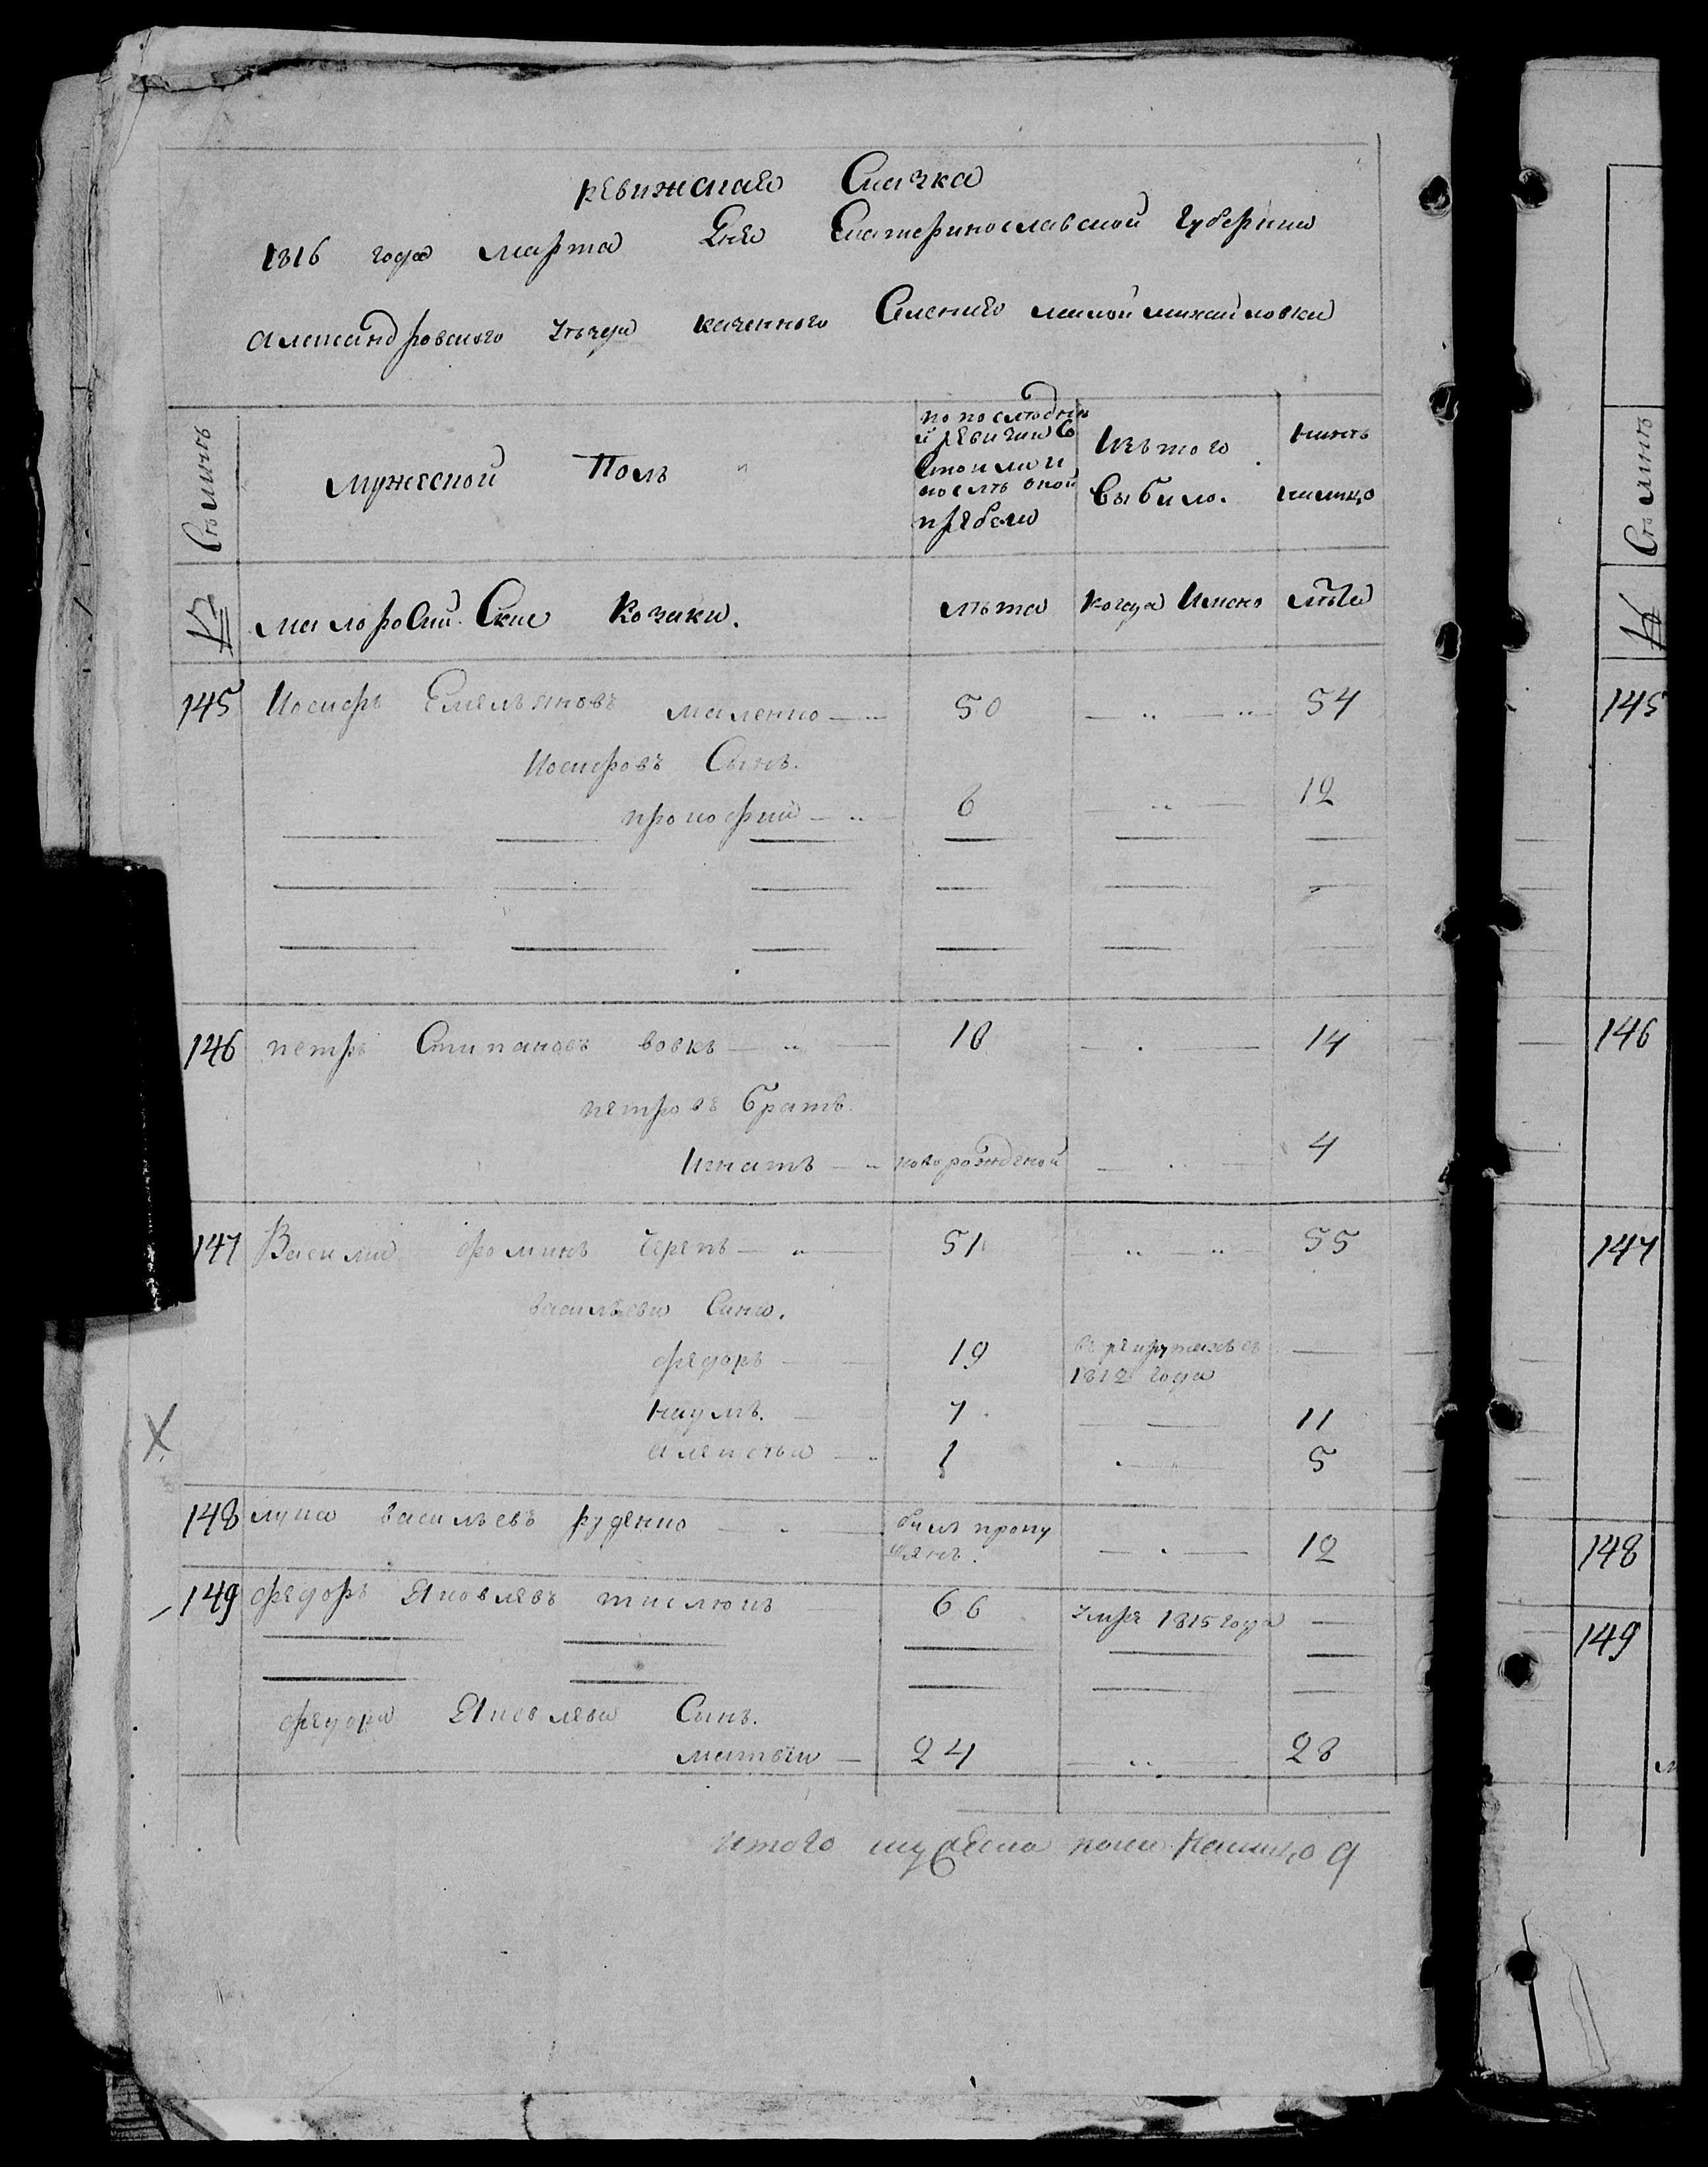 ревижская Скаска
1816 года марта Дня Екатеринославской губернии
Александровского уезда казенного Селения малой михайловки
Съминъ
мужеской Полъ
по последне
й ревизии Со
Стоило и
после оной
прибело
Изъ того
выбило.
нинѣ
налицо
№
малоросий Ские Козаки.
лѣта
когда Имено
лѣта
145 Иосифъ Емельяновъ маленко 50 54
Иосифовъ Сынъ.
прокофий 6 12
146 петръ Стипановъ вовкъ 10 14
петровъ братъ
Игнатъ новорожденой 4
147 Василий фоминъ Черепъ 51 55
васильеви Сини.
федоръ 19 въ рекрутахъ съ
1812 года
наумъ. 7 11
алексѣй 1 5
148 лука васильевъ руденко билъ пропу
щенъ. 12
149 федоръ Яковлевъ тислюкъ 66 умре 1815 года
федора Яковлева Синъ.
матвѣй 24 28
итого мужеска пола налицо 9
Съминъ
№
145
146
147
148
149